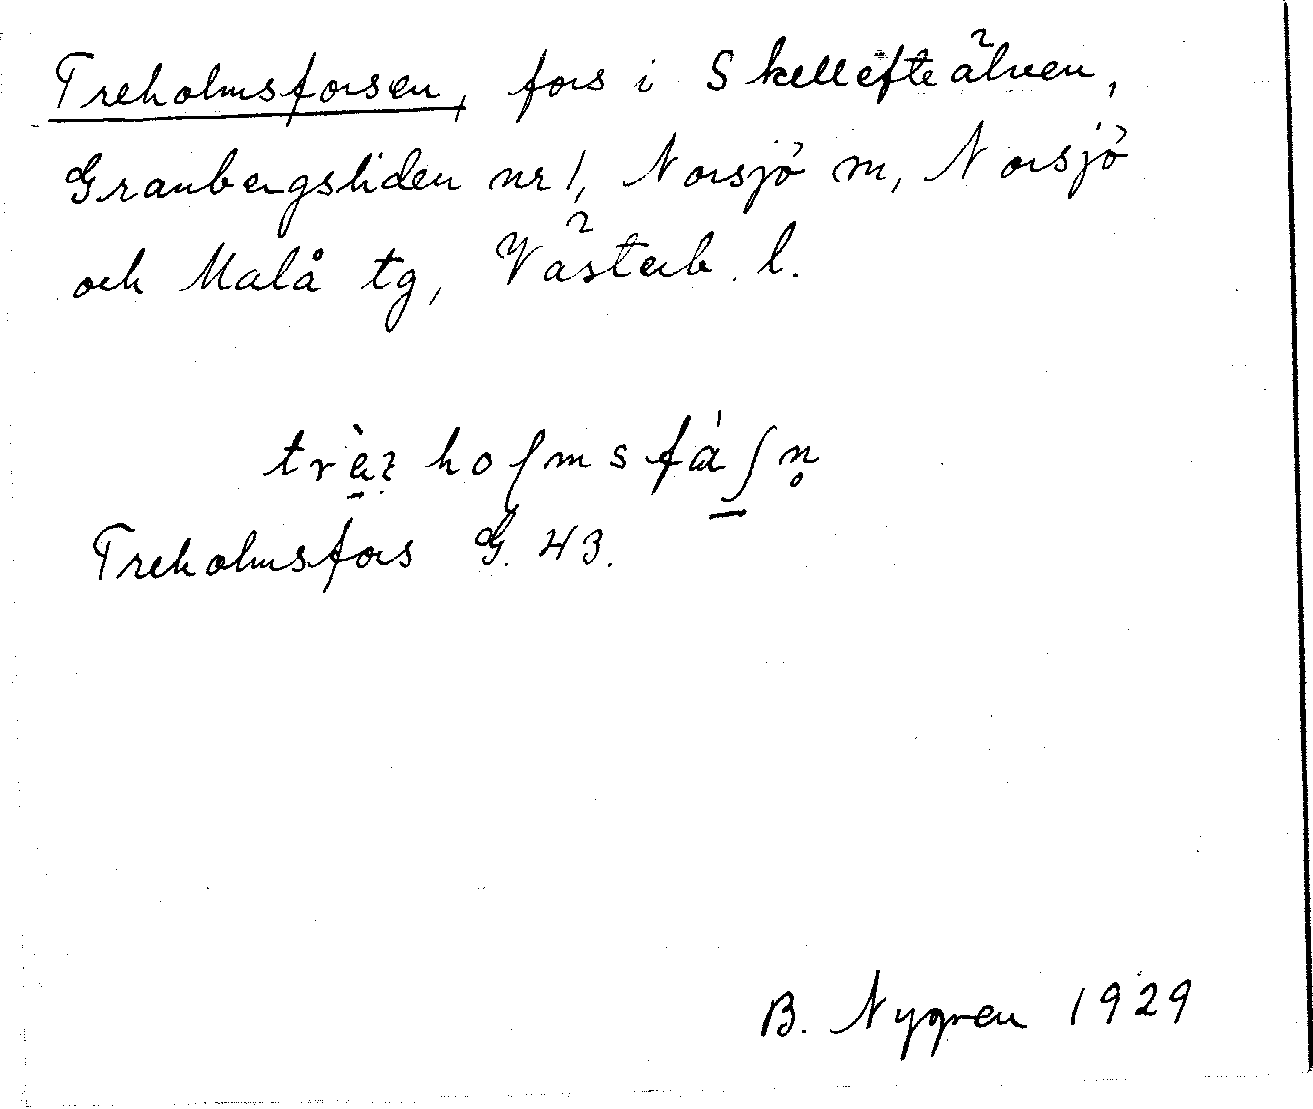 Treholmsforsen, fors i Skellefteälven,
Granbergsliden nr 1, Norsjö m, Norsjö
och Malå tg, Västerb. l.
Treholmsfors G. 43.
B. Nygren 1929